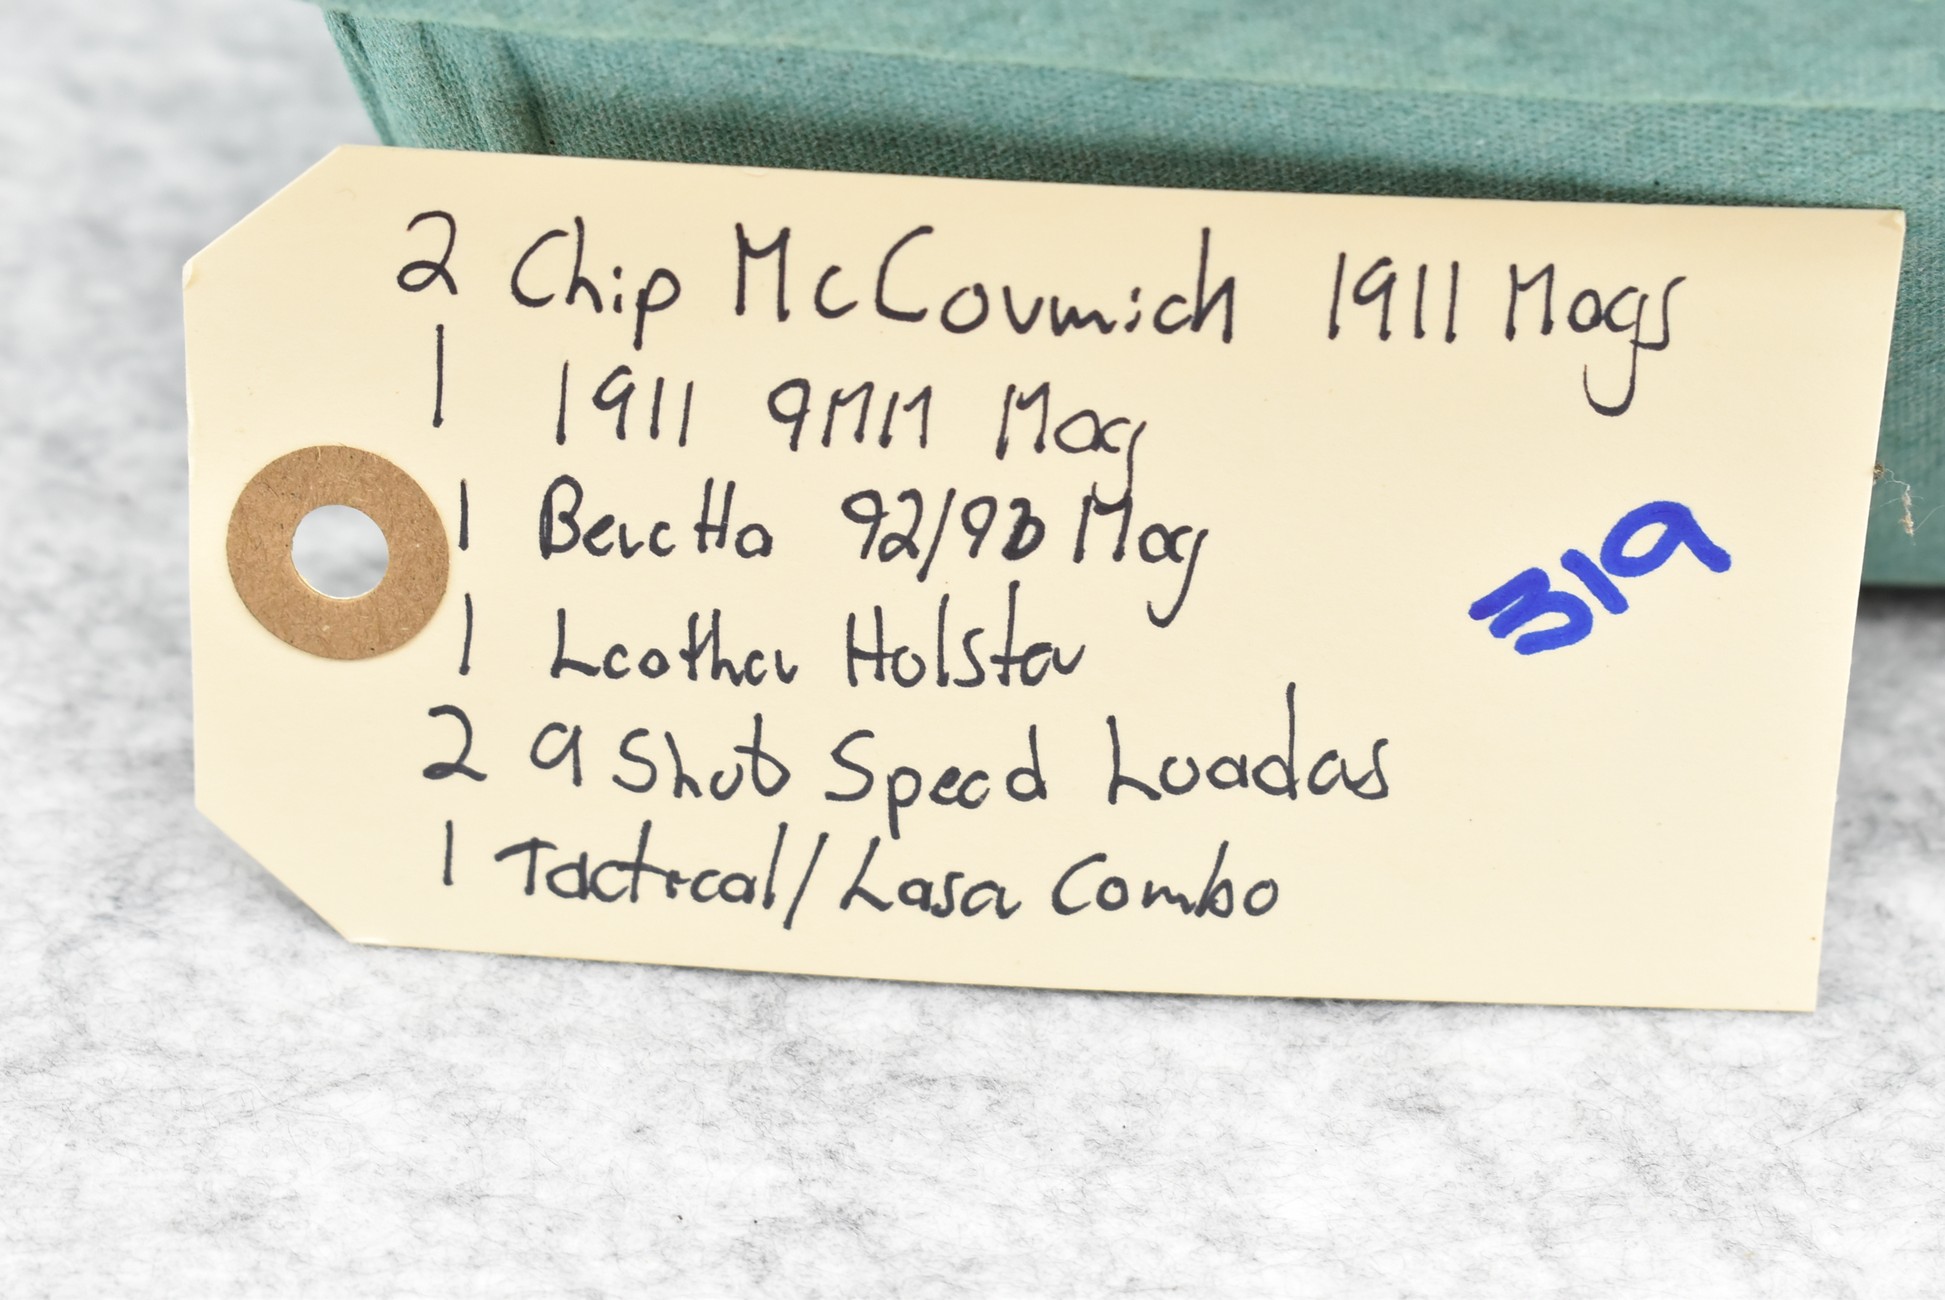 2 Chip McCormick 1911 Mags
1 1911 9MM Mag
1 Beretta 92/93 Mag
1 Leather Holster
2 9 Shot Speed Loaders
1 Tactical/Laser Combo
319